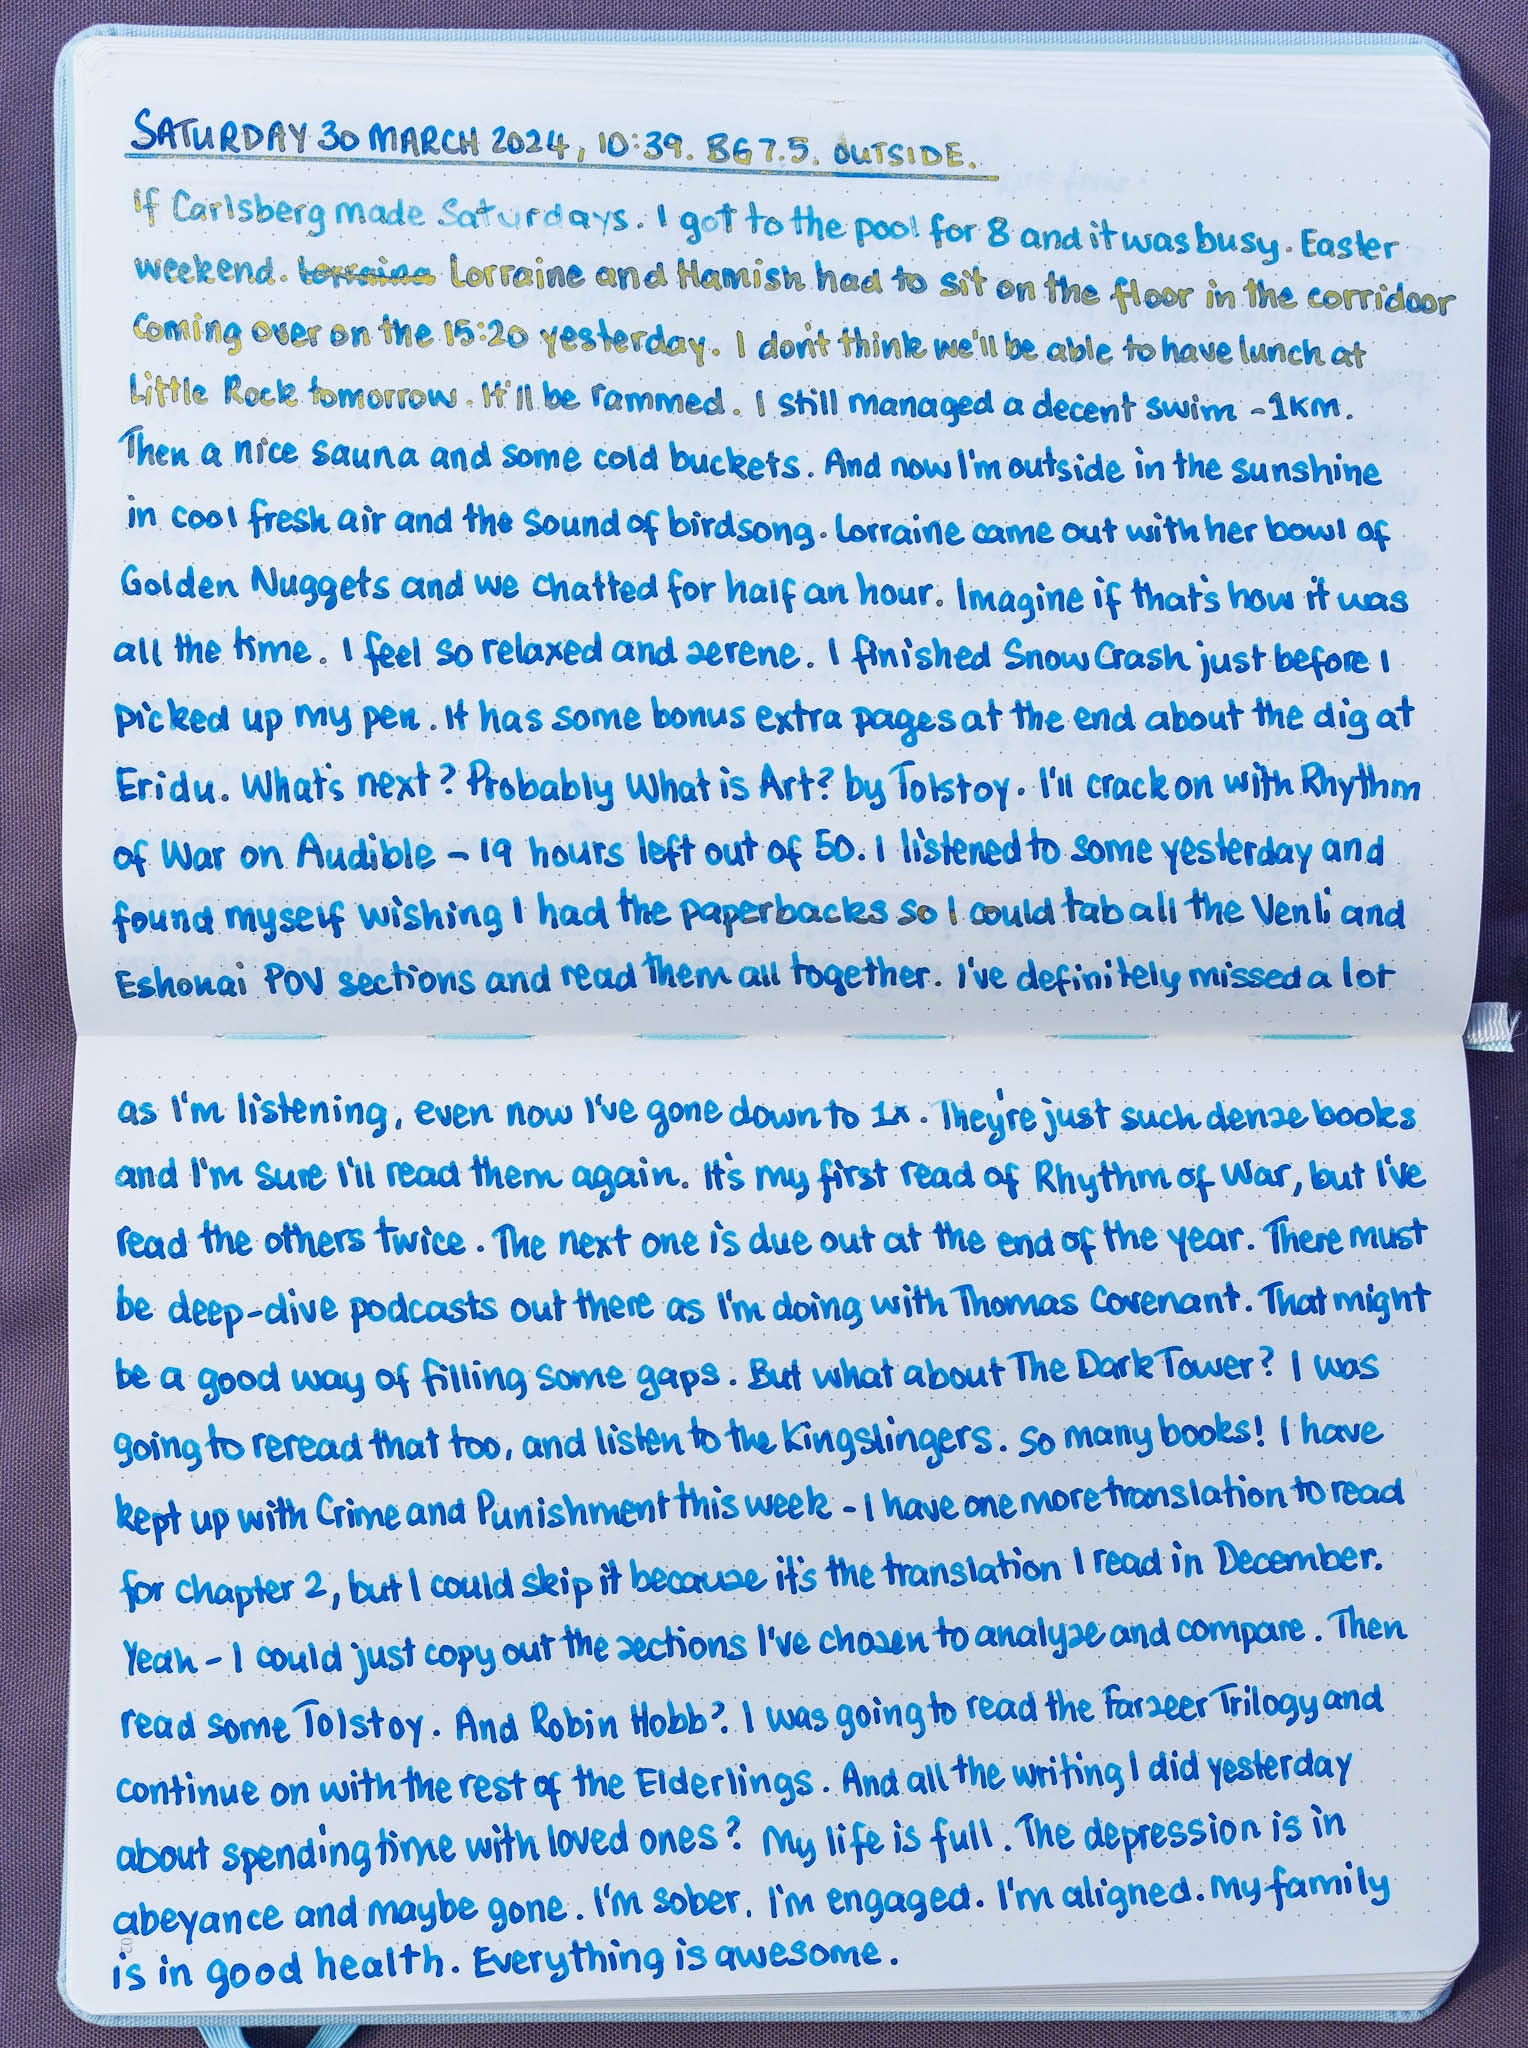 SATURDAY 30 MARCH 2024, 10:39. BG 7.5. OUTSIDE.
If Carlsberg made Saturdays. I got to the pool for 8 and it was busy. Easter
weekend. Lorraine Lorraine and Hamish had to sit on the floor in the corridoor
coming over on the 15:20 yesterday. I don't think we'll be able to have lunch at
Little Rock tomorrow. It'll be rammed. I still managed a decent swim - 1KM.
Then a nice sauna and some cold buckets. And now I'm outside in the sunshine
in cool fresh air and the sound of birdsong. Lorraine came out with her bowl of
Golden Nuggets and we chatted for half an hour. Imagine if that's how it was
all the time. I feel so relaxed and serene. I finished Snow Crash just before I
picked up my pen. It has some bonus extra pages at the end about the dig at
Eridu. What's next? Probably What is Art? by Tolstoy. I'll crack on with Rhythm
of War on Audible - 19 hours left out of 50. I listened to some yesterday and
found myself wishing I had the paperbacks so I could tab all the Venli and
Eshonai POV sections and read them all together. I've definitely missed a lot
as I'm listening, even now I've gone down to 1x. They're just such dense books
and I'm sure I'll read them again. It's my first read of Rhythm of War, but I've
read the others twice. The next one is due out at the end of the year. There must
be deep-dive podcasts out there as I'm doing with Thomas Covenant. That might
be a good way of filling some gaps. But what about The Dark Tower? I was
going to reread that too, and listen to the Kingslingers. So many books! I have
kept up with Crime and Punishment this week - I have one more translation to read
for chapter 2, but I could skip it because it's the translation I read in December.
Yeah - I could just copy out the sections I've chosen to analyse and compare. Then
read some Tolstoy. And Robin Hobb? I was going to read the Farseer Trilogy and
continue on with the rest of the Elderlings. And all the writing I did yesterday
about spending time with loved ones? My life is full. The depression is in
abeyance and maybe gone. I'm sober. I'm engaged. I'm aligned. My family
is in good health. Everything is awesome.